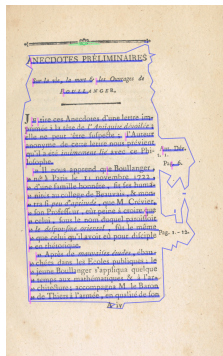 ANECDOTES PRÉLIMINAIRES
Sur la vie, la mort & les Ouvrages de
BOULLANGER.
Je tire ces Anecdotes d'une lettre im-
primée à la tête de l'Antiquité dévoilée ;
elle ne peut être suspecte ; l'Auteur
anonyme de cette lettre nous prévient
qu'il a été intimement lié avec ce Phi-
losophe.
Il nous apprend que Boullanger,
né à Paris le 11 novembre 1722,
d'une famille honnête, fit ses huma-
nités au college de Beauvais, & mon-
tra si peu d'aptitude, que M. Crévier,
son Professeur, eût peine à croire que
celui, sous le nom duquel paraissoit
le despotisme oriental, fût le même
que celui qu'il avoit eû pour disciple
en rhétorique.
Après de mauvaises études, ébau-
chées dans les Ecoles publiques, le
jeune Boullanger s'appliqua quelque
temps aux mathématiques & à l'ar-
chitecture ; accompagna M. le Baron
de Thiers à l'armée, en qualité de son
Pag. 1.-12.